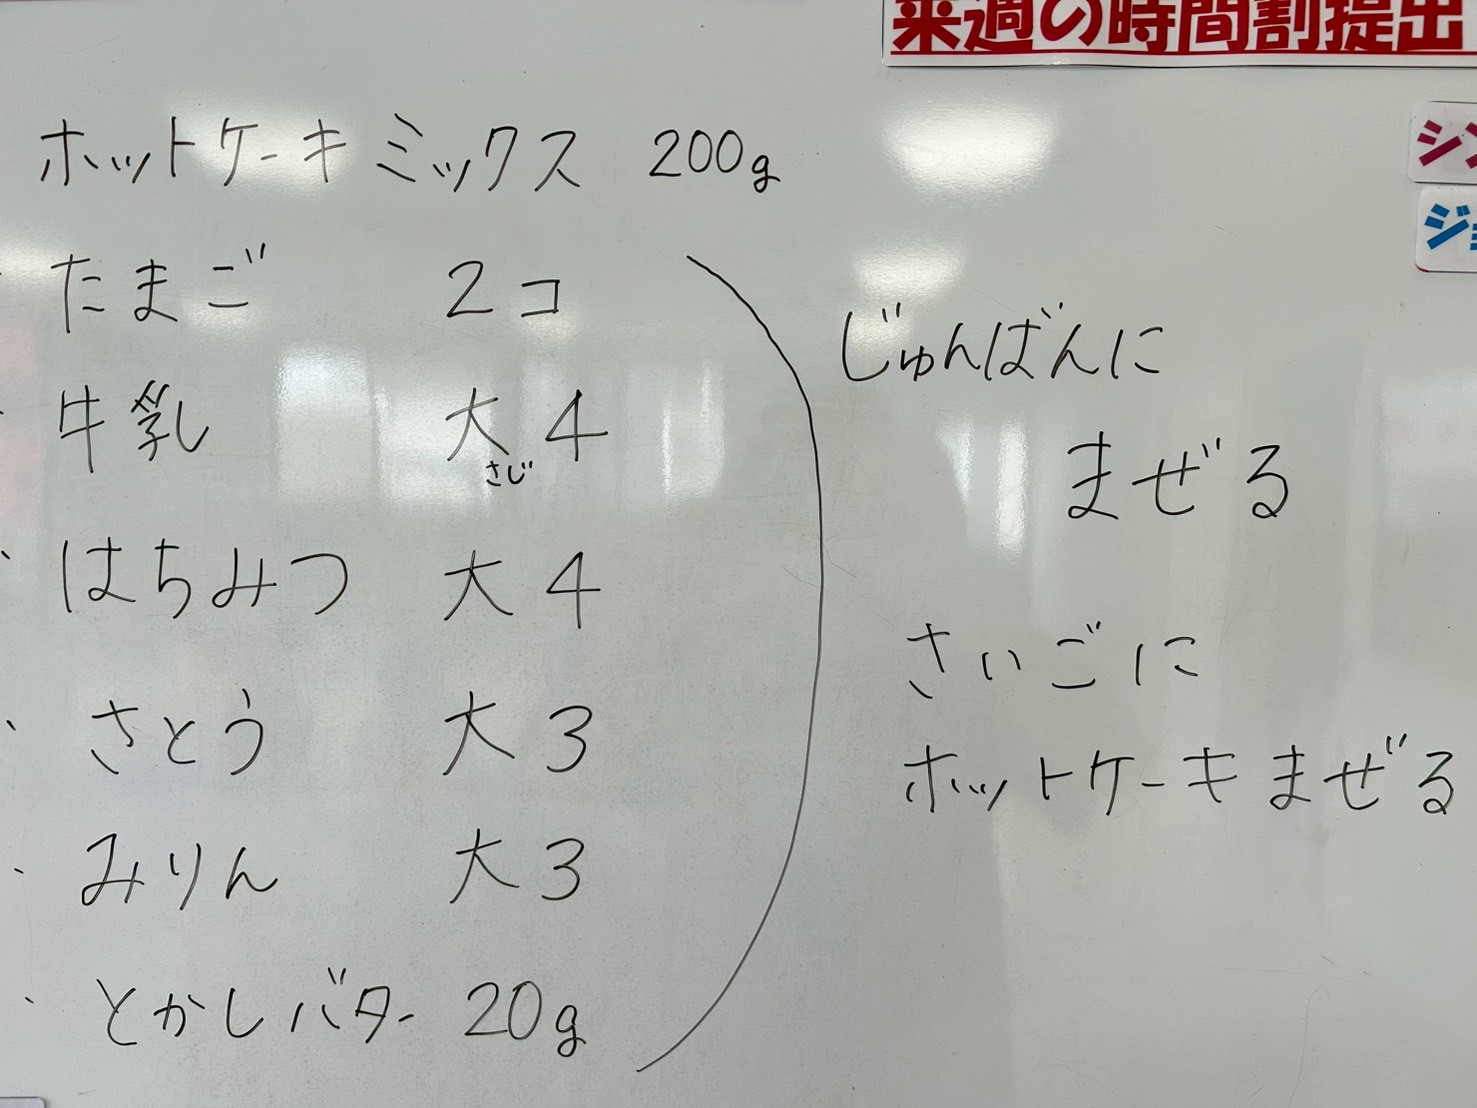 来週の時間割提出
ホットケーキミックス 200g
・たまご 2コ
・牛乳 大さじ4
・はちみつ 大4
・さとう 大3
・みりん 大3
・とかしバター 20g
じゅんばんに
まぜる
さいごに
ホットケーキまぜる